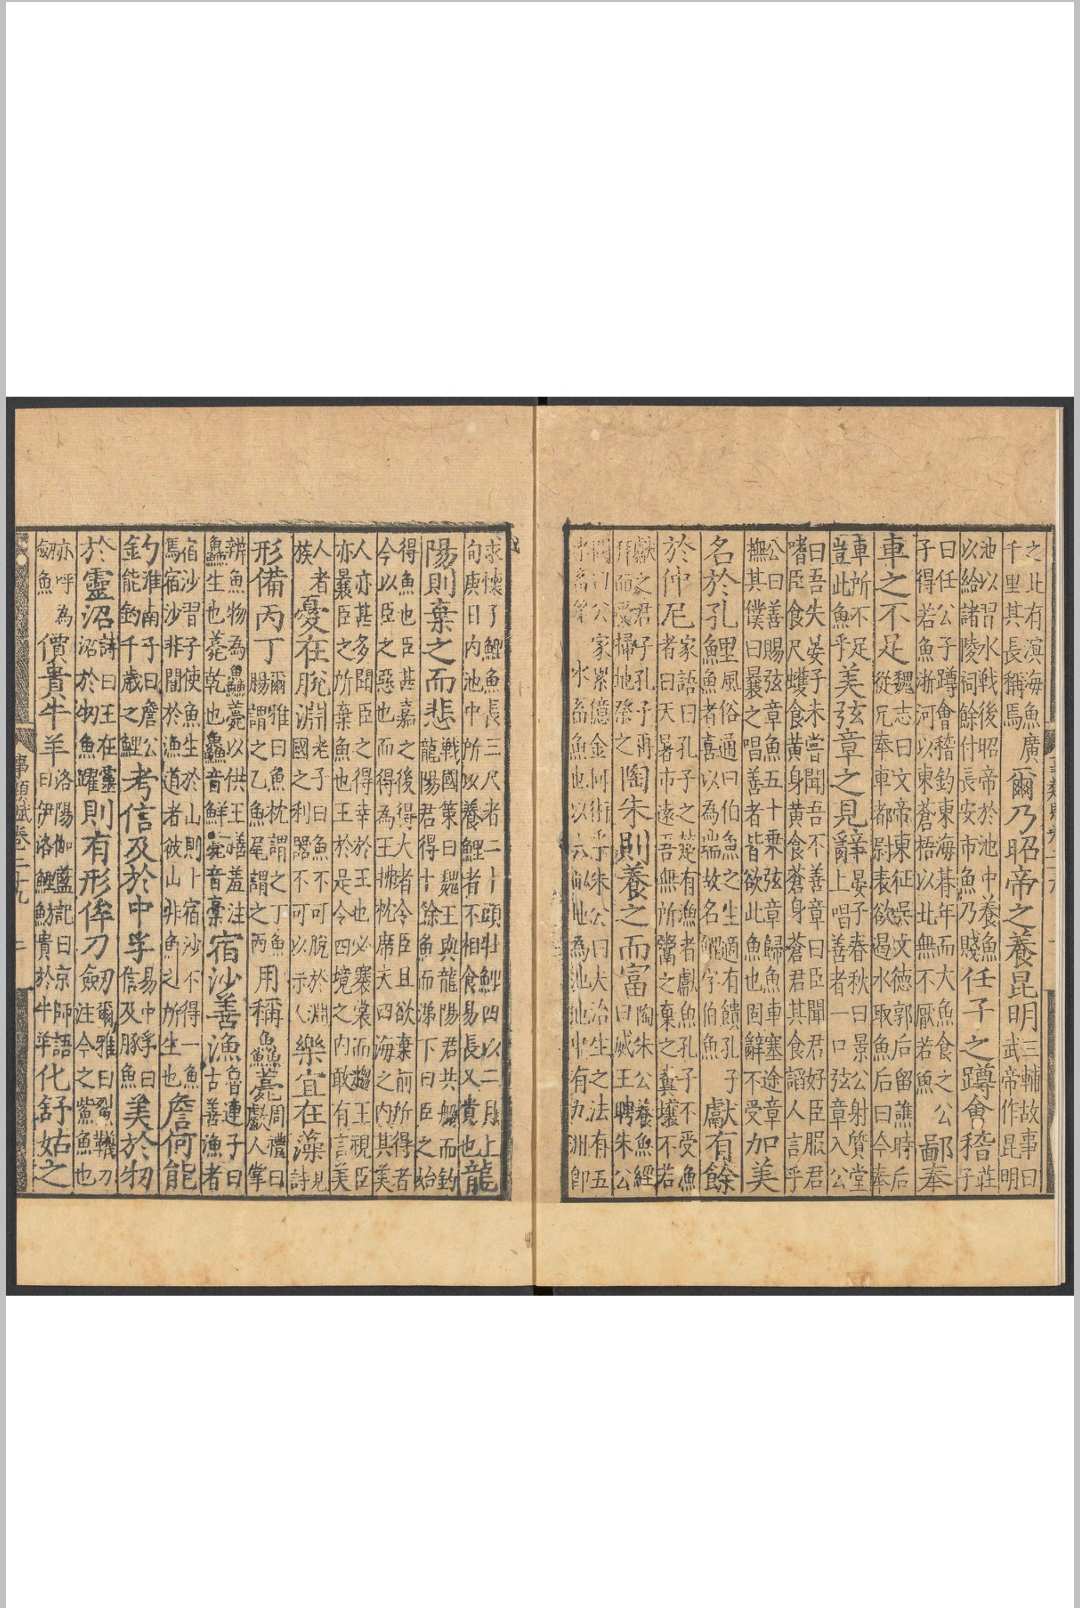 之北有溟海魚廣千里其長稱焉爾乃昭帝之養昆明三輔故事曰武帝作昆明
池以習水戰後昭帝於池中養魚以給諸陵祠餘付長安市魚乃賤任子之蹲會稽莊子
曰任公子蹲會稽釣東海朞年而大魚食之公子得若魚淛河以東蒼梧以北無不厭若魚鄙奉
車之不足魏志曰文帝東征吳文德郭后留譙時后從兄奉車都尉表欲遏水取魚后曰今奉
車所不足豈此魚乎美弦章之見辭晏子春秋曰景公射質堂上唱善者一口弦章入公
曰吾失晏子未嘗聞吾不善章曰臣聞君好臣服君嗜臣食尺蠖食黃身黃食蒼身蒼君其食諂人言乎
公曰善賜弦章魚五十乘弦章歸魚車塞途章撫其僕曰曩之唱善者皆欲此魚也固辭不受加美
名於孔鯉風俗通曰伯魚之生適有饋孔子魚者喜以為瑞故名鯉字伯魚獻有餘
於仲尼家語曰孔子之楚有漁者獻魚孔子不受漁者曰天暑市遠吾無所鬻之棄之糞壤不若
獻之君子孔子再拜而受掃地祭之陶朱則養之而富陶朱公養魚經曰威王聘朱公
問曰公家累億金何術乎朱公曰夫治生之法有五水畜第一水畜魚也以六畝地為池池中有九洲即
求懷子鯉魚長三尺者二十頭牡鯉四以二月上旬庚日內池中所以養鯉者不相食易長又貴也龍
陽則棄之而悲戰國策曰魏王與龍陽君共船而釣龍陽君得十餘魚而涕下曰臣之始
得魚也臣甚嘉之後得大者令臣且欲棄前所得者今以臣之惡也而得為王拂枕席夫四海之內其美
人亦甚多聞臣之得幸於王也必褰裳而趨王視臣亦曩臣之所棄魚也王於是令四境之內敢有言美
人者族憂在脫淵老子曰魚不可脫於淵國之利器不可以示人樂宜在藻見詩
形備丙丁爾雅曰魚枕謂之丁魚腸謂之乙魚尾謂之丙用稱鱻薧周禮曰䱷人掌
辨魚物為鱻薧以供王膳羞注鱻生也薧乾也鱻音鮮薧音稾宿沙善漁魯連子曰古善漁者
宿沙渭子使魚生於山則十宿沙不得一魚焉宿沙非闇於漁道者彼山非魚之所生也詹何能
釣淮南子曰詹公能釣千歲之鯉考信及於中孚易中孚曰信及豚魚美於牣
於靈沼詩曰王在靈沼於牣魚躍則有形侔刀劒爾雅曰鴷鱴刀注今之鮆魚也
亦呼為魛魚價貴牛羊洛陽伽藍記曰京師語曰伊洛鯉魴貴於牛羊化舒姑之
事類賦卷二十九